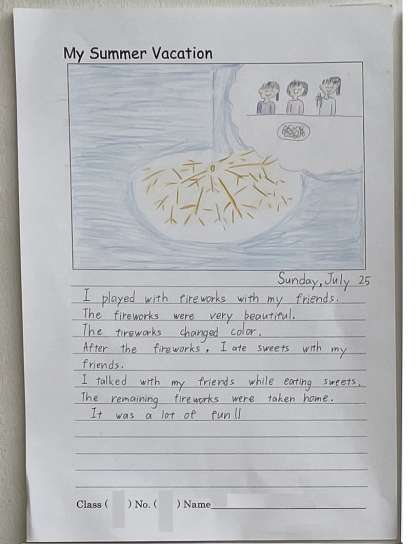 My Summer Vacation
Sunday, July 25
I played with fireworks with my friends.
The fireworks were very beautiful.
The fireworks changed color.
After the fireworks, I ate sweets with my
friends.
I talked with my friends while eating sweets.
The remaining fireworks were taken home.
It was a lot of fun!!
Class ( ) No. ( ) Name